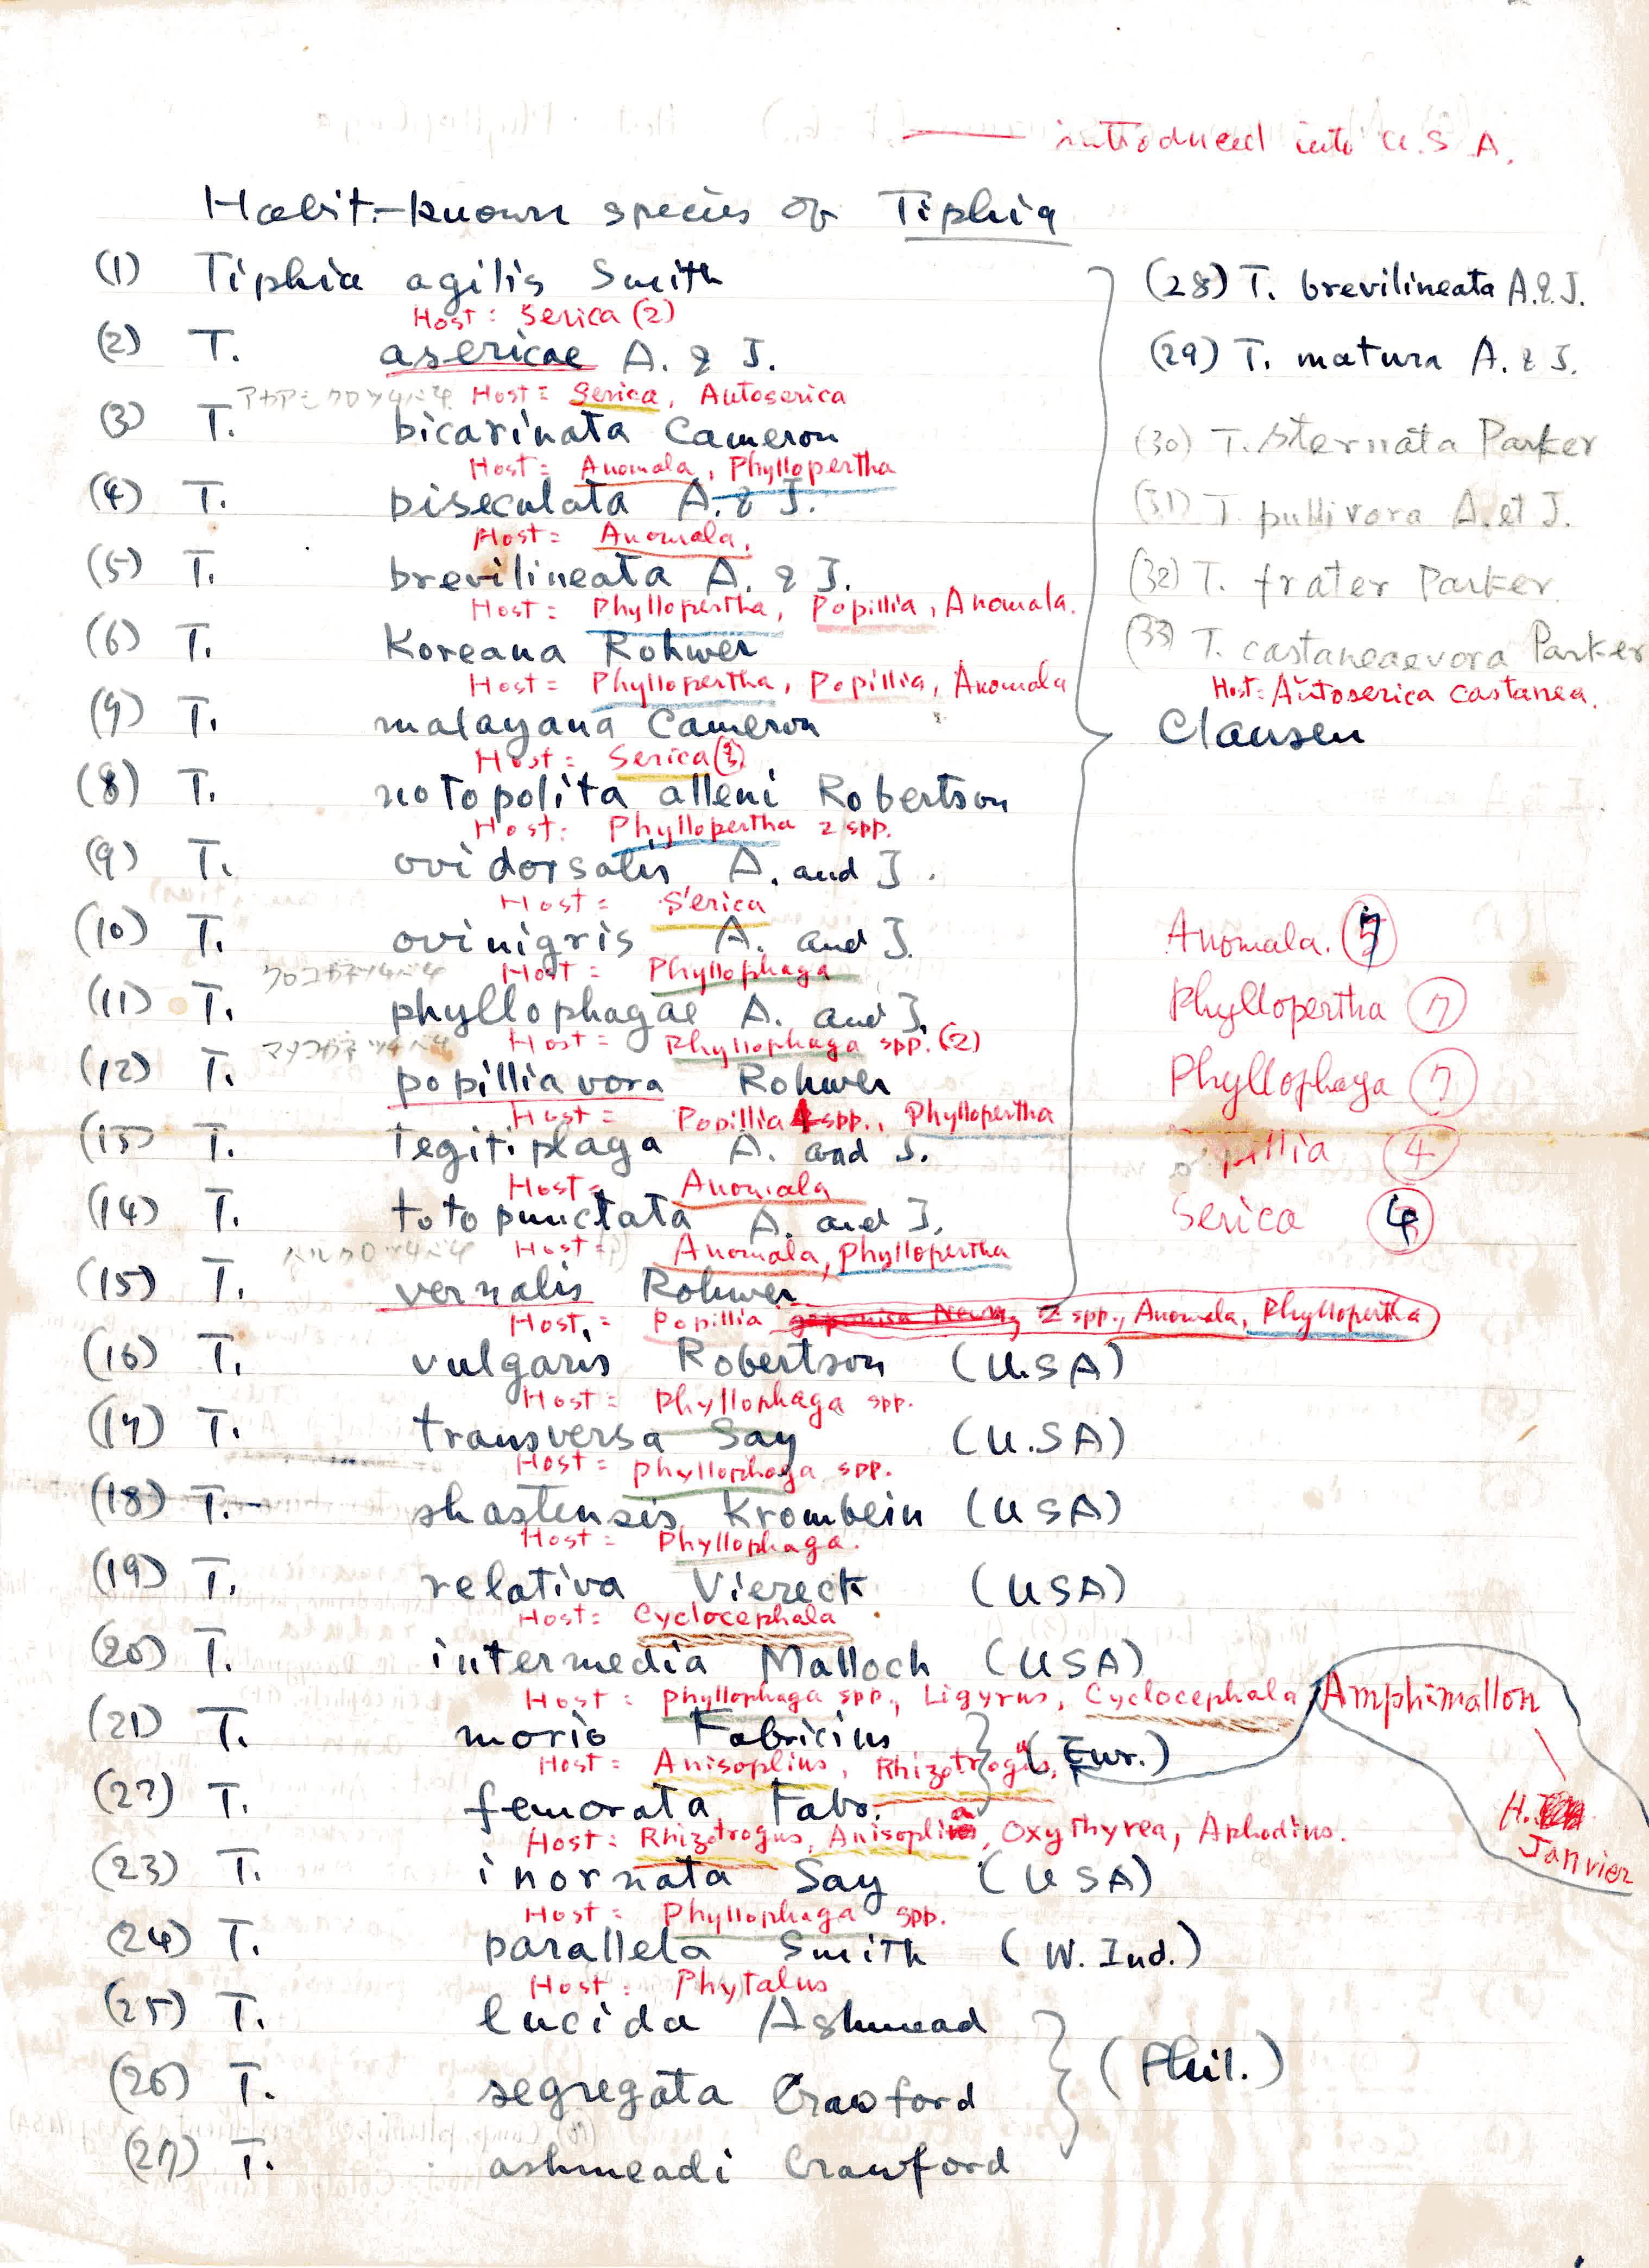 introduced into U.S A.
Habit-known species of Tiphia
(1) Tiphia agilis Smith
Host : Serica (2)
(2) T. asericae A. & J.
アカアシクロツチバチ Host = Serica, Autoserica
(3) T. bicarinata Cameron
Host = Anomala, Phyllopertha
(4) T. biseculata A. & J.
Host = Anomala,
(5) T. brevilineata A. & J.
Host = Phyllopertha, Popillia, Anomala.
(6) T. Koreana Rohwer
Host = Phyllopertha, Popillia, Anomala
(7) T. malayana Cameron
Host = Serica (3)
(8) T. notopolita alleni Robertson
Host: Phyllopertha 2 spp.
(9) T. ovidorsalis A. and J.
Host = Serica
(10) T. ovinigris A. and J.
クロコガネツチバチ Host = Phyllophaga
(11) T. phyllophagae A. and J.
マメコガネツチバチ Host = Phyllophaga spp. (2)
(12) T. popilliavora Rohwer
Host = Popillia 4 spp., Phyllopertha
(13) T. tegitiplaga A. and J.
Host = Anomala
(14) T. totopunctata A. and J.
ハルクロツチバチ Host = Anomala, Phyllopertha
(15) T. vernalis Rohwer
Host = Popillia japonica Newm, 2 spp., Anomala, Phyllopertha
(16) T. vulgaris Robertson (U.SA)
Host = Phyllophaga spp.
(17) T. transversa Say (U.SA)
Host = phyllophaga spp.
(18) T. shastensis Krombein (USA)
Host = Phyllophaga.
(19) T. relativa Viereck (USA)
Host = Cyclocephala
(20) T. intermedia Malloch (USA)
Host : phyllophaga spp., Ligyrus, Cyclocephala
(21) T. morio Fabricius (Eur.)
Host = Anisoplius, Rhizotrogus, Amphimallon
H. Janvier
(22) T. femorata Fabr.
Host : Rhizotrogus, Anisoplia, Oxythyrea, Aphodius.
(23) T. inornata Say (USA)
Host = Phyllophaga spp.
(24) T. parallela Smith (W. Ind.)
Host : Phytalus
(25) T. lucida Ashmead
(26) T. segregata Crawford (Phil.)
(27) T. ashmeadi Crawford
(28) T. brevilineata A.&J.
(29) T. matura A. & J.
(30) T. sternata Parker
(31) T. pullivora A. et J.
(32) T. frater Parker.
(33) T. castaneaevora Parker
Host: Autoserica castanea.
Clausen
Anomala. 7
Phyllopertha 7
Phyllophaga 7
Popillia 4
Serica 4